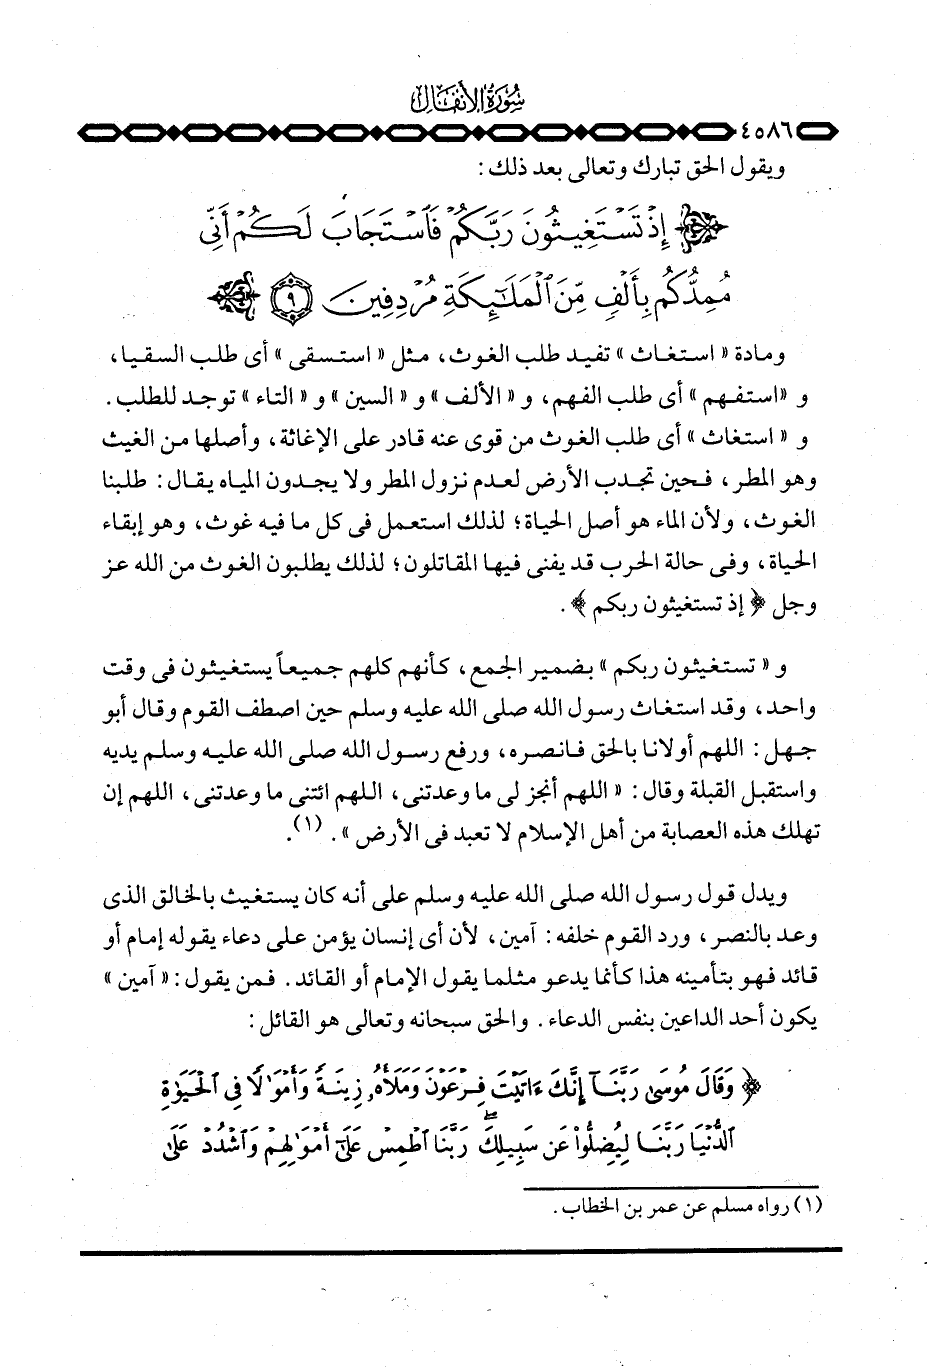 سُورَةُ الأَنفَال
٤٥٨٦
ويقول الحق تبارك وتعالى بعد ذلك :
إِذْ تَسْتَغِيثُونَ رَبَّكُمْ فَاسْتَجَابَ لَكُمْ أَنِّي
مُمِدُّكُم بِأَلْفٍ مِّنَ ٱلْمَلَٰٓئِكَةِ مُرْدِفِينَ ٩
ومادة « استغاث » تفيد طلب الغوث، مثل « استسقى » أى طلب السقيا ،
و «استفهم » أى طلب الفهم، و « الألف » و « السين » و « التاء » توجد للطلب .
و « استغاث » أى طلب الغوث من قوى عنه قادر على الإغاثة، وأصلها من الغيث
وهو المطر ، فحين تجدب الأرض لعدم نزول المطر ولا يجدون المياه يقال : طلبنا
الغوث، ولأن الماء هو أصل الحياة؛ لذلك استعمل فى كل ما فيه غوث، وهو إبقاء
الحياة، وفى حالة الحرب قد يفنى فيها المقاتلون؛ لذلك يطلبون الغوث من الله عز
وجل ﴿ إذ تستغيثون ربكم ﴾ .
و « تستغيثون ربكم » بضمير الجمع، كأنهم كلهم جميعاً يستغيثون فى وقت
واحد، وقد استغاث رسول الله صلى الله عليه وسلم حين اصطف القوم وقال أبو
جهل : اللهم أولانا بالحق فانصره، ورفع رسول الله صلى الله عليه وسلم يديه
واستقبل القبلة وقال : « اللهم أنجز لى ما وعدتنى، اللهم ائتنى ما وعدتنى، اللهم إن
تهلك هذه العصابة من أهل الإسلام لا تعبد فى الأرض » . (١).
ويدل قول رسول الله صلى الله عليه وسلم على أنه كان يستغيث بالخالق الذى
وعد بالنصر، ورد القوم خلفه : آمين، لأن أى إنسان يؤمن على دعاء يقوله إمام أو
قائد فهو بتأمينه هذا كأنما يدعو مثلما يقول الإمام أو القائد . فمن يقول : « آمين »
يكون أحد الداعين بنفس الدعاء . والحق سبحانه وتعالى هو القائل :
﴿ وَقَالَ مُوسَىٰ رَبَّنَآ إِنَّكَ ءَاتَيْتَ فِرْعَوْنَ وَمَلَأَهُۥ زِينَةً وَأَمْوَٰلًا فِى ٱلْحَيَوٰةِ
ٱلدُّنْيَا رَبَّنَا لِيُضِلُّوا۟ عَن سَبِيلِكَ ۖ رَبَّنَا ٱطْمِسْ عَلَىٰٓ أَمْوَٰلِهِمْ وَٱشْدُدْ عَلَىٰ
(١) رواه مسلم عن عمر بن الخطاب .